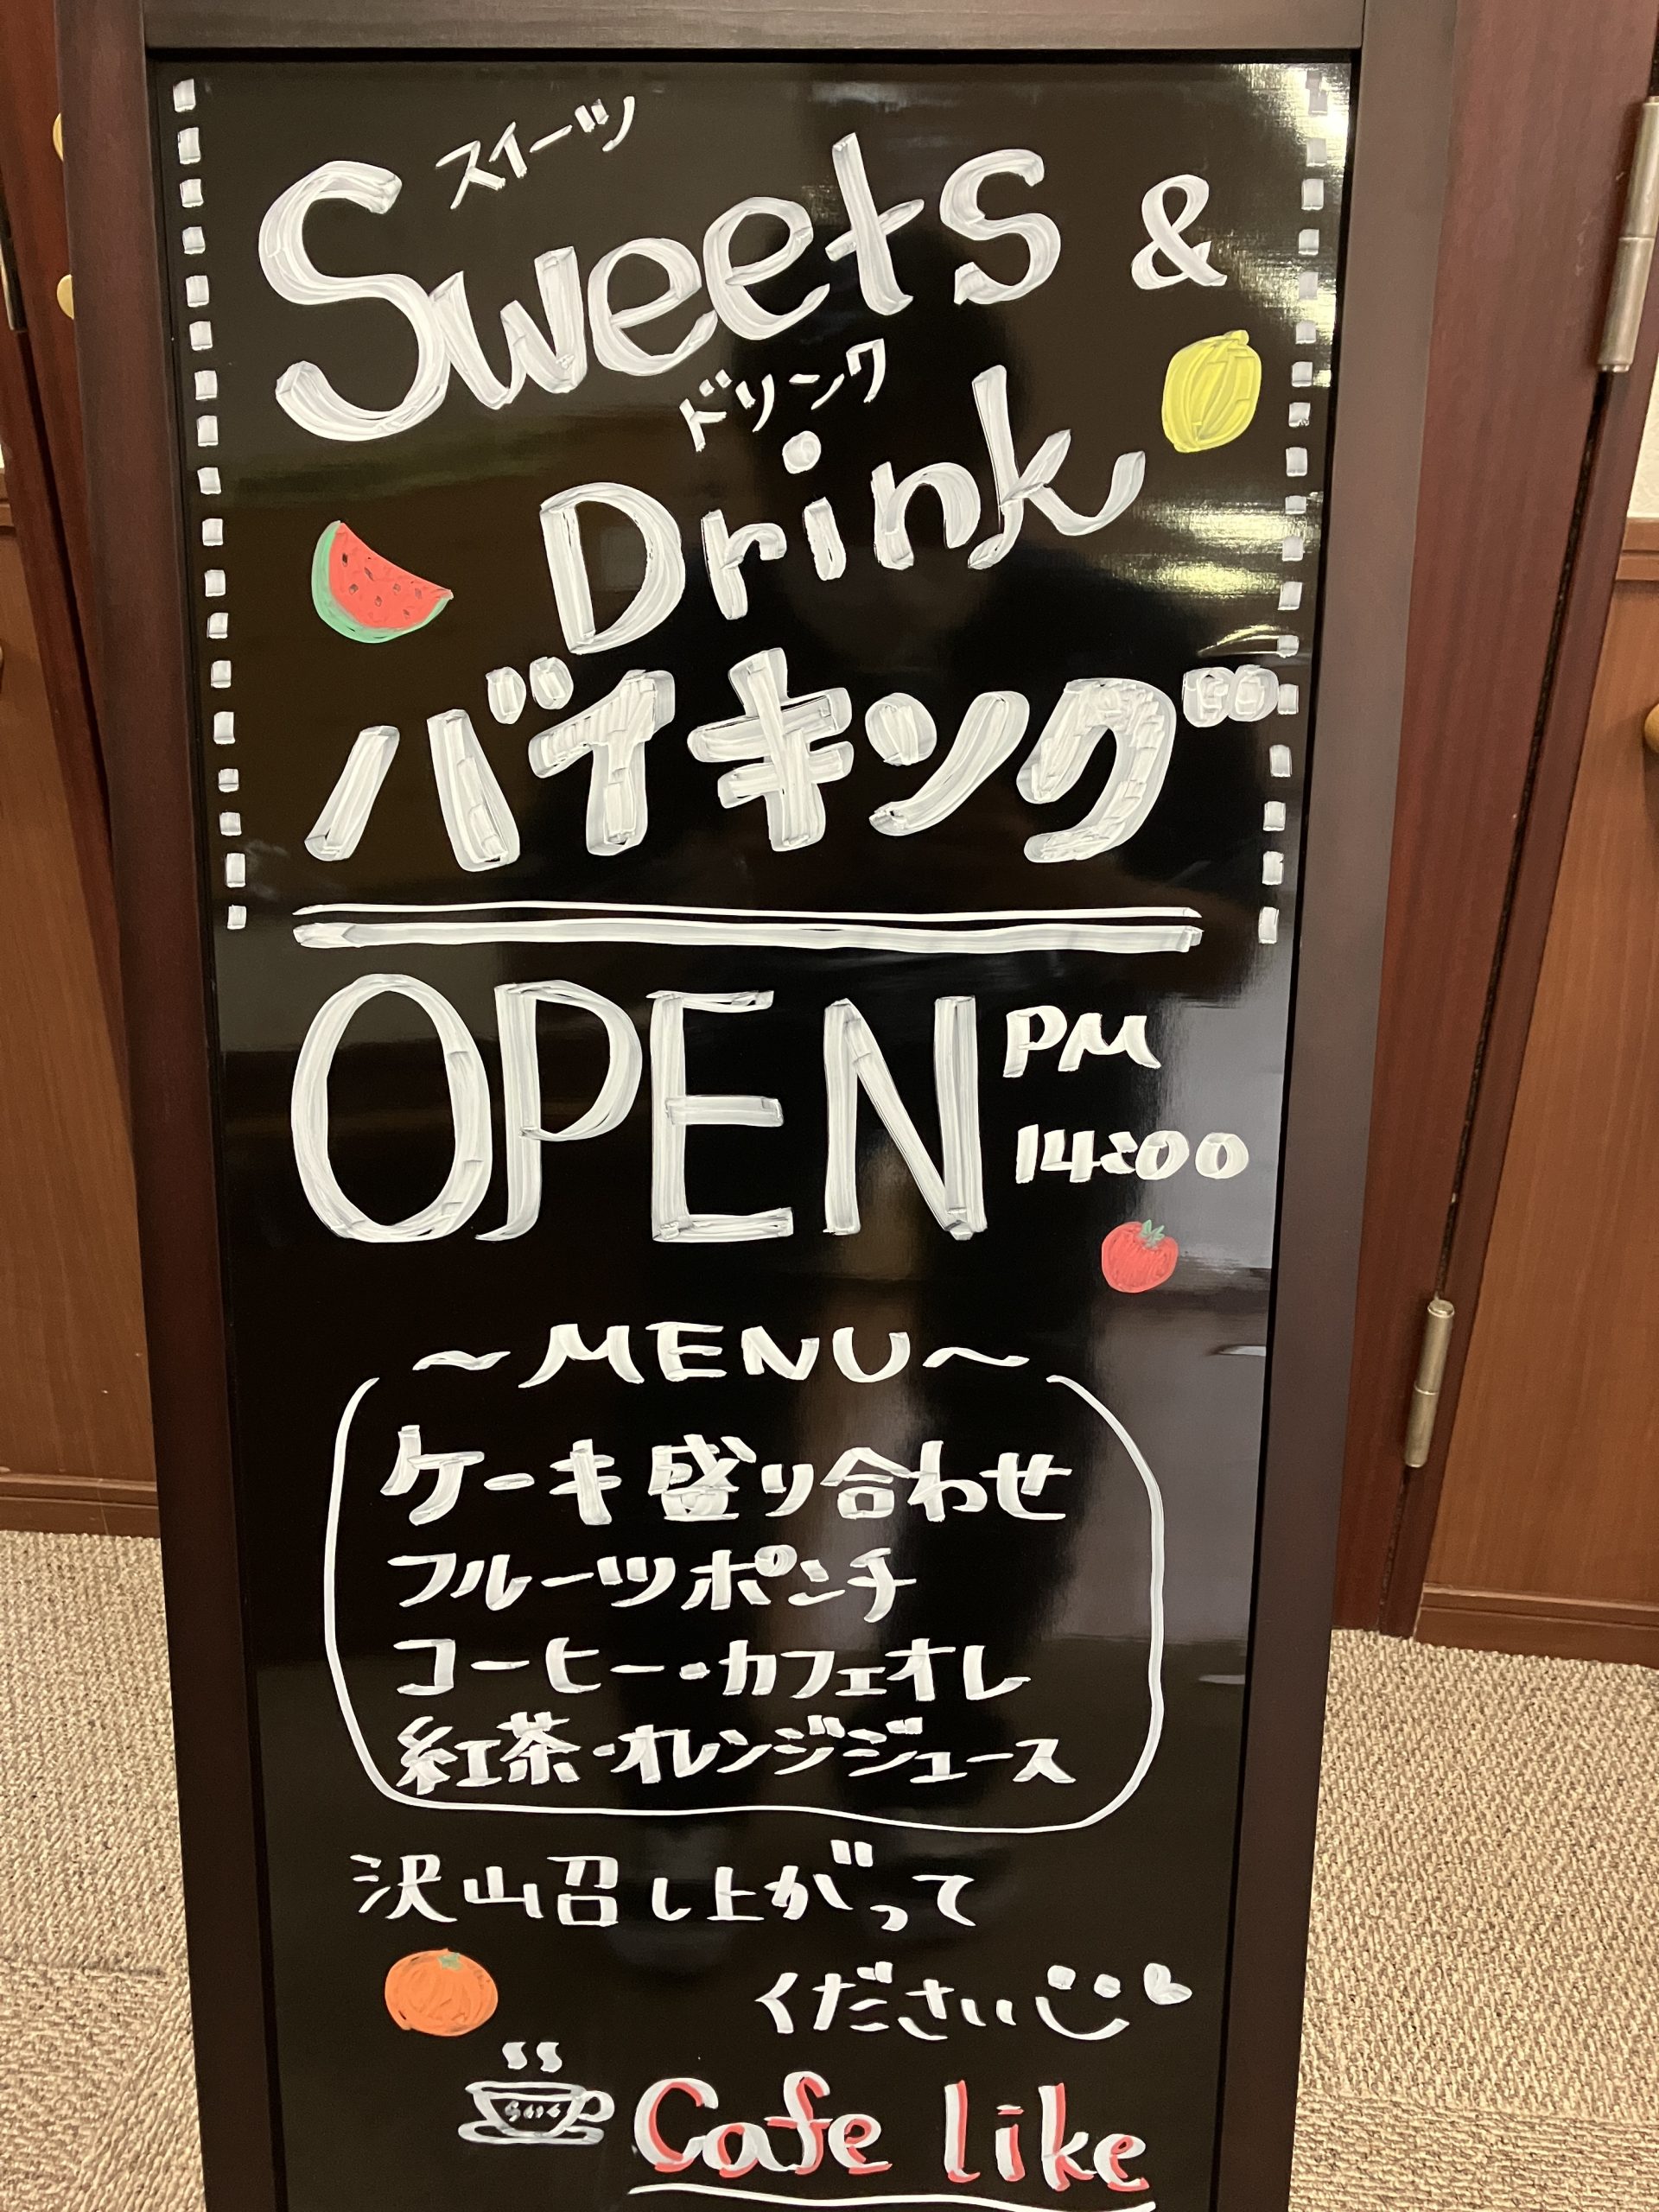 スイーツ
Sweets &
ドリンク
Drink
バイキング
OPEN PM
14:00
～MENU～
ケーキ盛り合わせ
フルーツポンチ
コーヒー・カフェオレ
紅茶・オレンジジュース
沢山召し上がって
ください
Cafe like